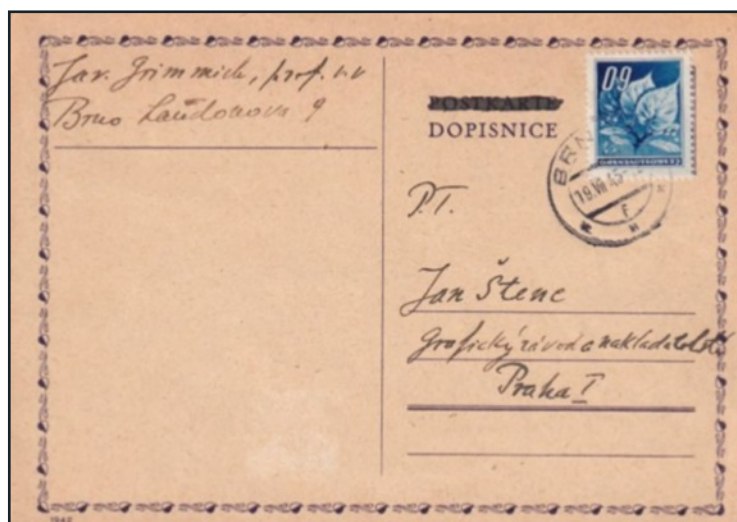 Jar. Grimmich, prof. v.v
Brno Laudonova 9
POSTKARTE
DOPISNICE
60
ČESKOSLOVENSKO
BRN
19.VII.45
F
P.T.
Jan Štenc
Grafický závod a nakladatelství
Praha I